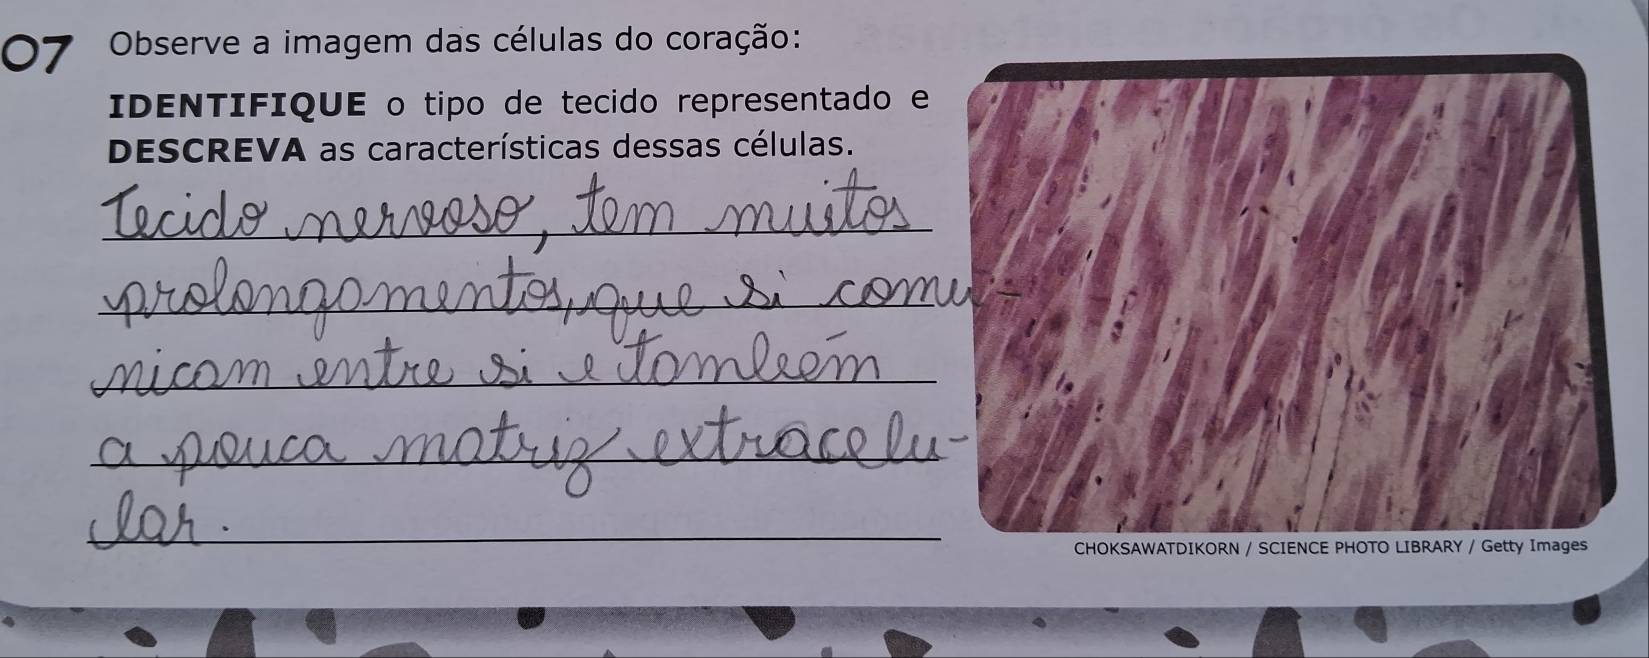 07 Observe a imagem das células do coração:
IDENTIFIQUE o tipo de tecido representado e
DESCREVA as características dessas células.
Tecido nervoso, tem muitos
prolongamentos, que si comu-
nicam entre si e também
a pouca matriz extracelu-
lar.
CHOKSAWATDIKORN / SCIENCE PHOTO LIBRARY / Getty Images